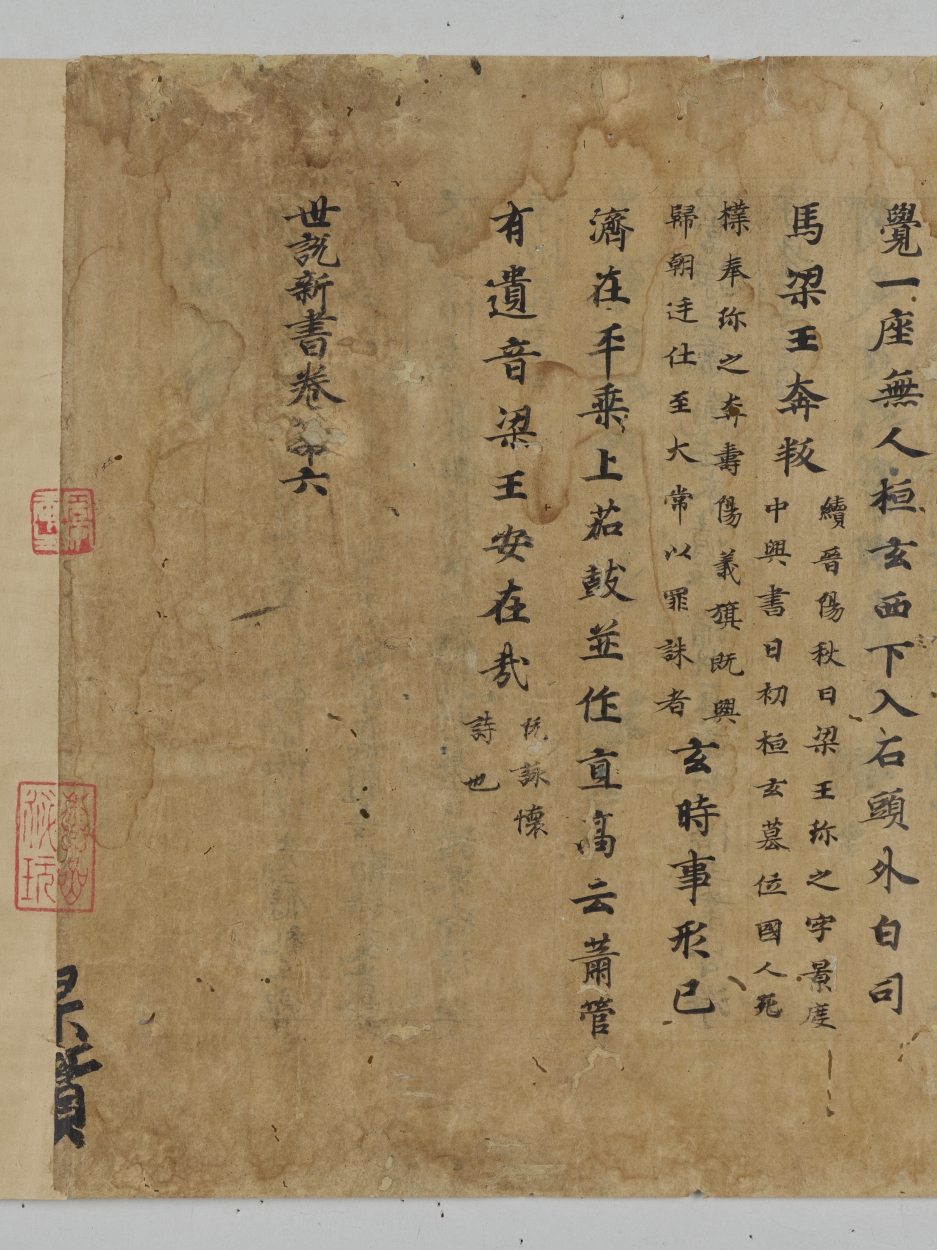 覺一座無人桓玄西下入石頭外白司
馬梁王奔叛
續晉陽秋曰梁王珎之字景度
中興書曰初桓玄墓位國人死
檏奉珎之奔壽陽義旗既興
歸朝迋仕至大常以罪誅者
玄時事形已
濟在平乗上茄鼓並作直高云蕭管
有遺音梁王安在㢤
阮詠懷
詩也
世說新書卷第六